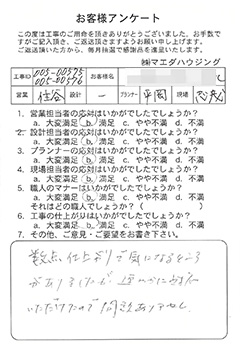 お客様アンケート
この度は工事のご用命を頂きありがとうございます。お手数で
すがご記入頂き、ご返送頂きますようお願い申し上げます。
ご返送頂いた方から、毎月抽選で感謝品を進呈いたします。
㈱マエダハウジング
工事ID 005-00575 005-00576 お客様名
営業 住谷 設計 － プランナー 平岡 現場
1. 営業担当者の応対はいかがでしたでしょうか？
a. 大変満足 b. 満足 c. やや不満 d. 不満
2. 設計担当者の応対はいかがでしたでしょうか？
a. 大変満足 b. 満足 c. やや不満 d. 不満
3. プランナーの応対はいかがでしたでしょうか？
a. 大変満足 b. 満足 c. やや不満 d. 不満
4. 現場担当者の応対はいかがでしたでしょうか？
a. 大変満足 b. 満足 c. やや不満 d. 不満
5. 職人のマナーはいかがでしたでしょうか？
a. 大変満足 b. 満足 c. やや不満 d. 不満
それはどの職人でしょうか？（ ）
6. 工事の仕上がりはいかがでしたでしょうか？
a. 大変満足 b. 満足 c. やや不満 d. 不満
7. その他、ご意見・ご要望をお書き下さい。
数点、仕上がりで気になるところ
がありましたが 速やかに対応
いただけたので 問題ありません。